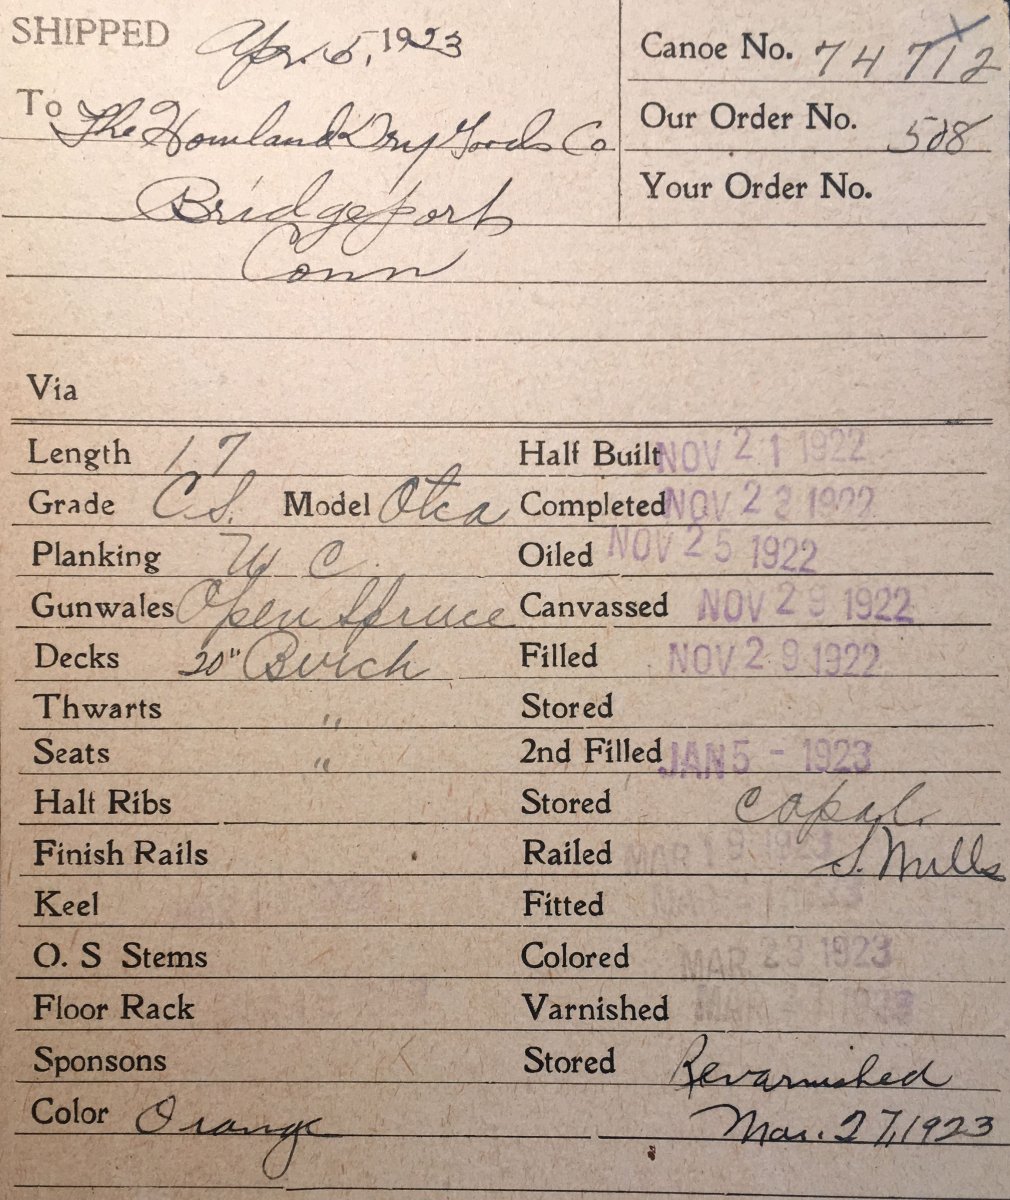 SHIPPED Apr. 5, 1923
Canoe No. 74 712
To The Howland Dry Goods Co
Our Order No. 508
Bridgeport
Your Order No.
Conn
Via
Length 17 Half Built NOV 21 1922
Grade C S. Model Otca Completed NOV 23 1922
Planking W C. Oiled NOV 25 1922
Gunwales Open Spruce Canvassed NOV 29 1922
Decks 20" Birch Filled NOV 29 1922
Thwarts " Stored
Seats " 2nd Filled JAN 5 - 1923
Half Ribs Stored copal.
Finish Rails Railed MAR 19 1923 S. Mills
Keel Fitted MAR 1923
O. S Stems Colored MAR 23 1923
Floor Rack Varnished MAR 1923
Sponsons Stored Revarnished
Color Orange Mar. 27, 1923